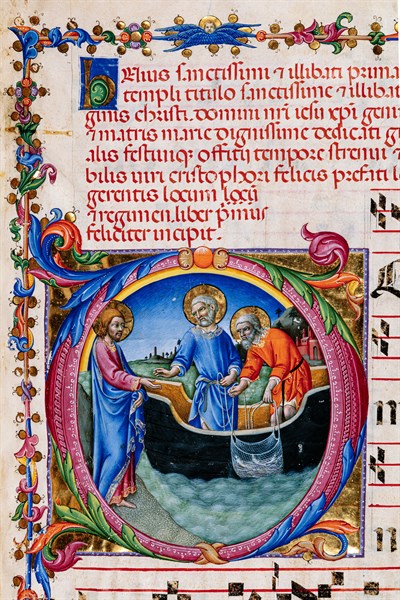 Huius sanctissimi & illibati prima
templi titulo sanctissime & illibat
ginis christi. domini nr̄i iesu xp̄i geni
& matris marie dignissime dedicati g
alis festiuiq; offitij tempore strenui &
bilis uiri cristophori felicis prefati l
gerentis locum.locū
& regimen.liber p̄mus
feliciter incipit.